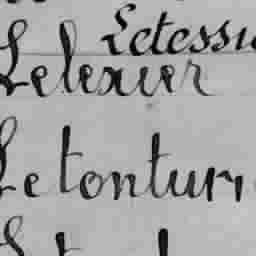 Letessi
Lelexier
Le tonturi